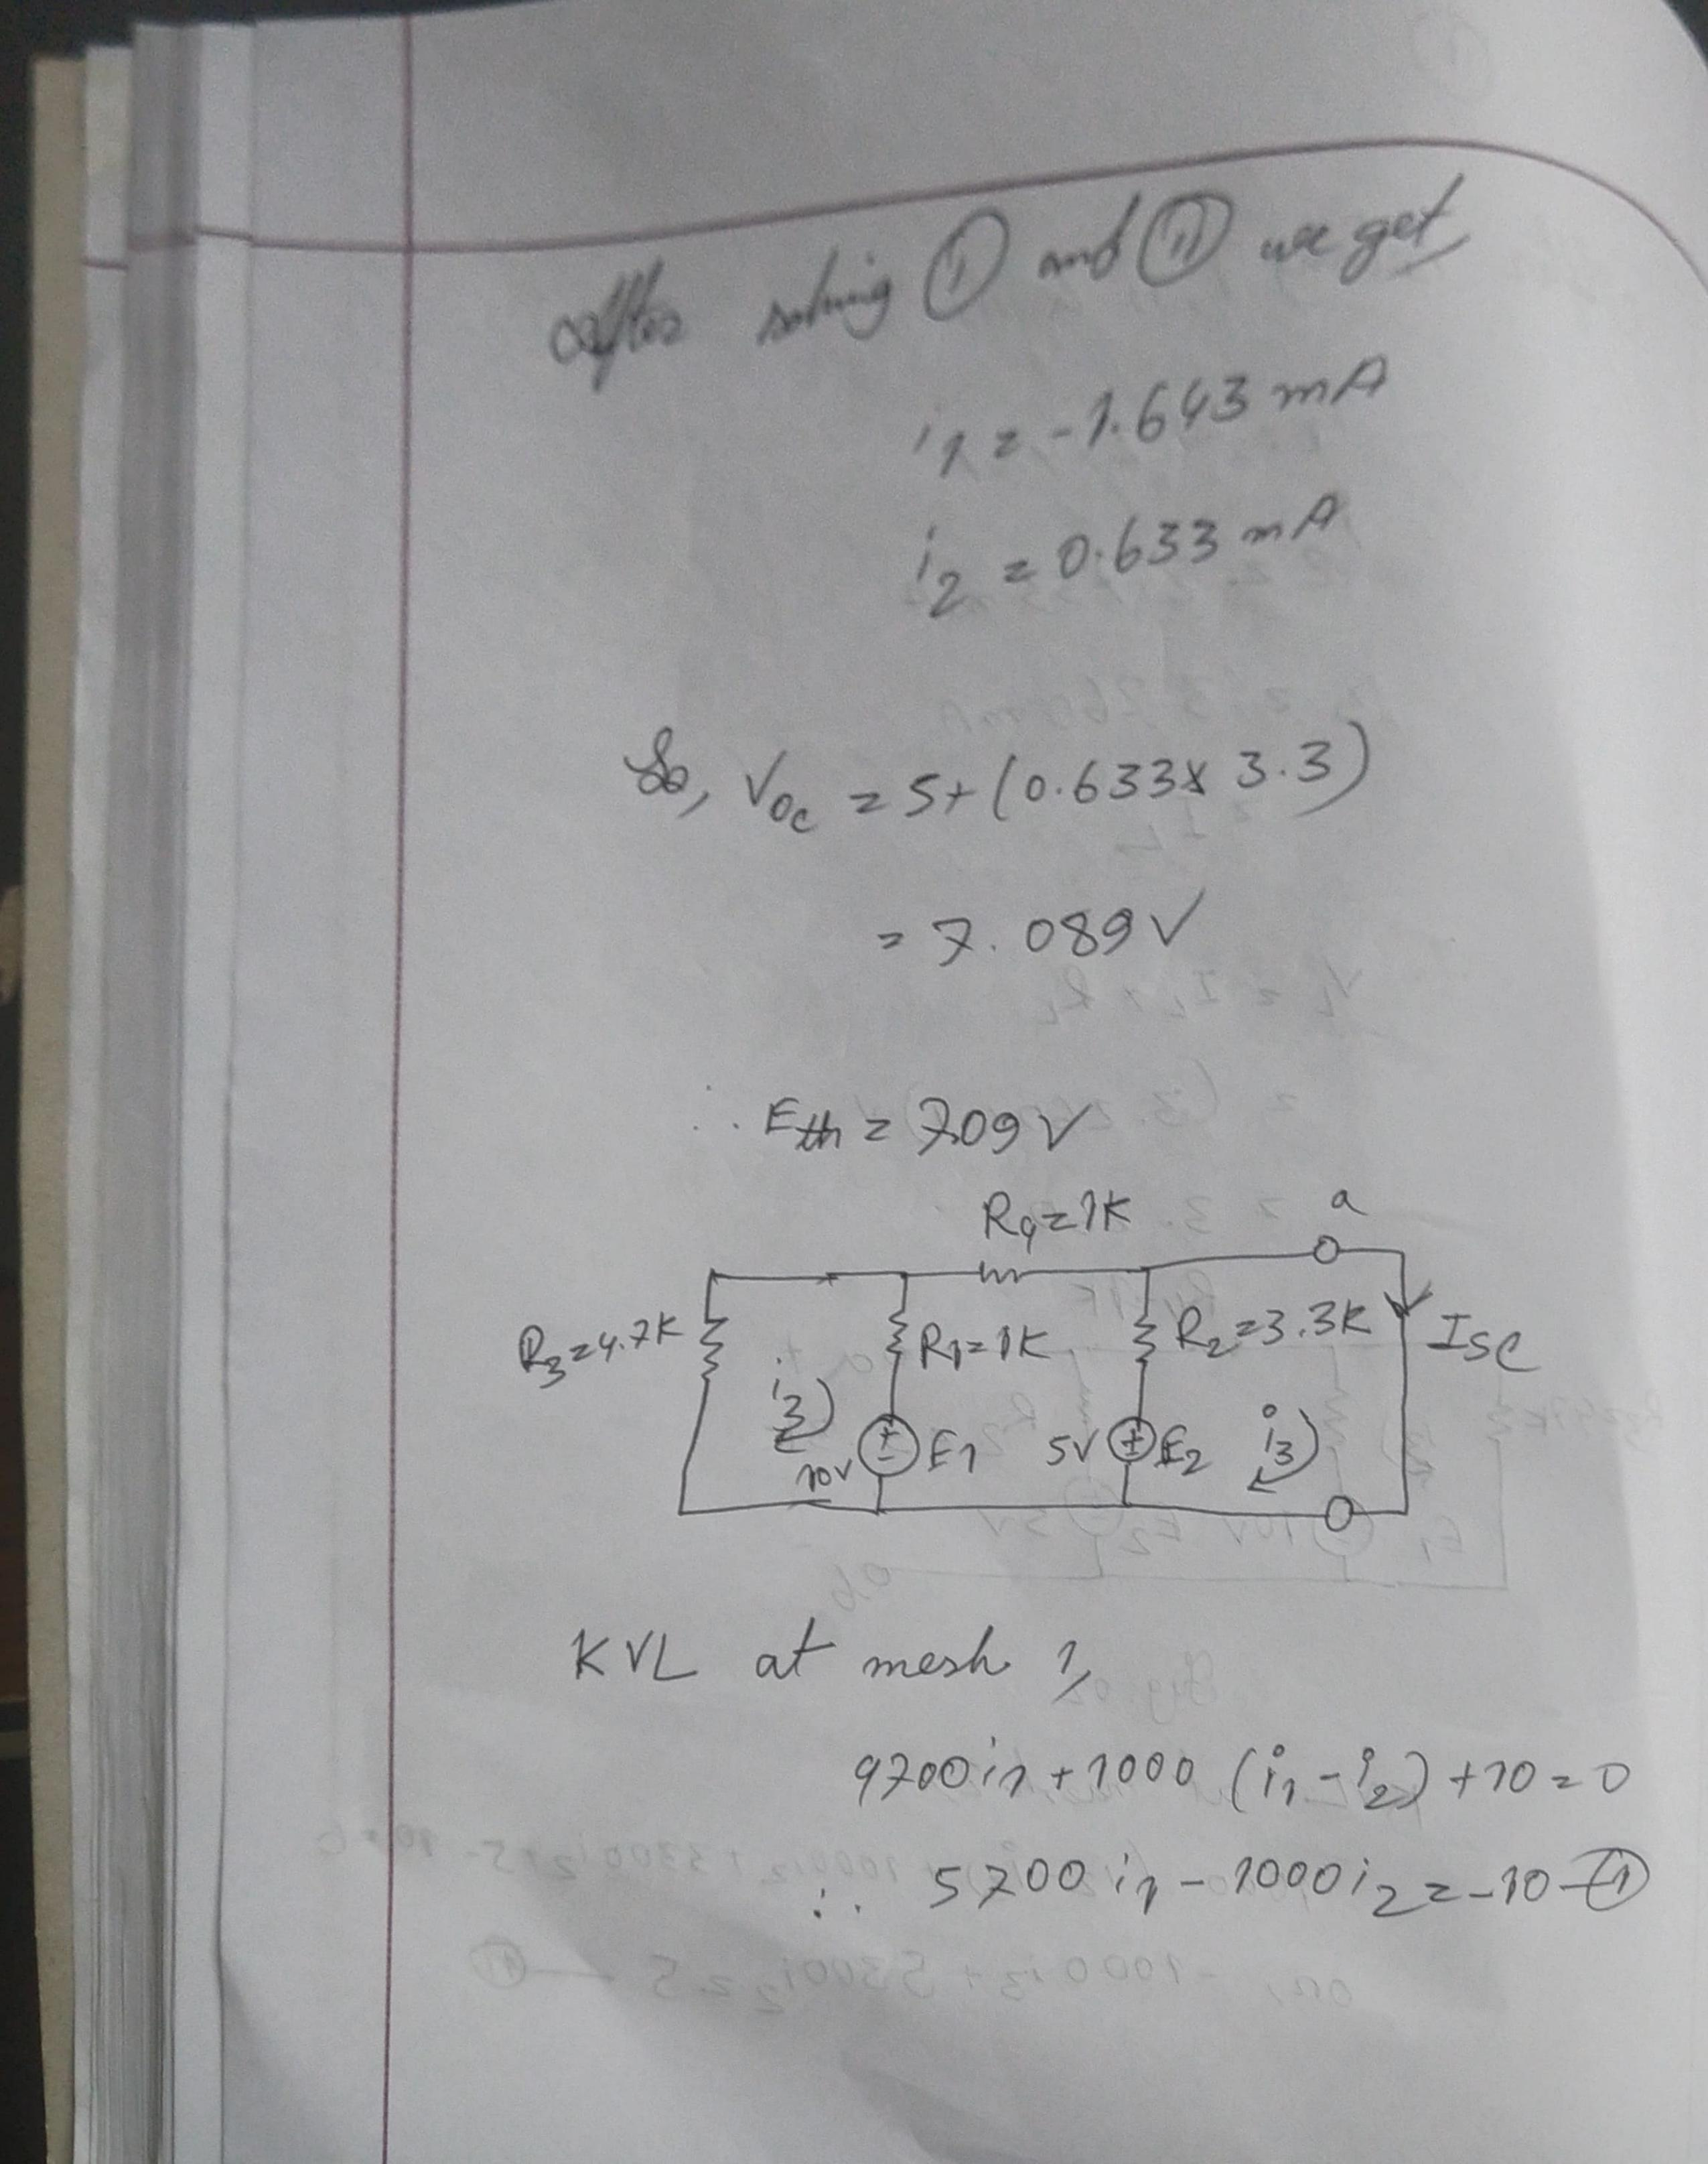 After solving ① and ⑪ we get
i1 = -1.643 mA
i2 = 0.633 mA
So, Voc = 5+(0.633x 3.3)
= 7.089 V
∴ Eth = 7.09 V
R4=1K
a
R3=4.7K
R1=1K
R2=3.3K
Isc
i3
10V
E1
5V
E2
i3
KVL at mesh 1,
4700i1+1000 (i1-i2)+10=0
∴ 5700 i1 - 1000i2 = -10 - ①